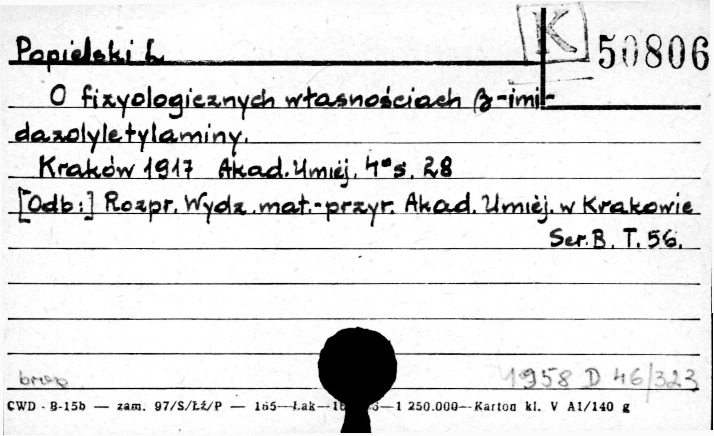 K 50806
Popielski L
O fizyologicznych własnościach β-imi-
dazolyletylaminy.
Kraków 1917 Akad. Umiej. 4° s. 28
[Odb:] Rozpr. Wydz. mat.-przyr. Akad. Umiej. w Krakowie
Ser. B. T. 56.
brosz
1958 D 46/323
CWD - B-15b — zam. 97/S/Łź/P — 165—Łak—1 250.000—Karton kl. V A1/140 g